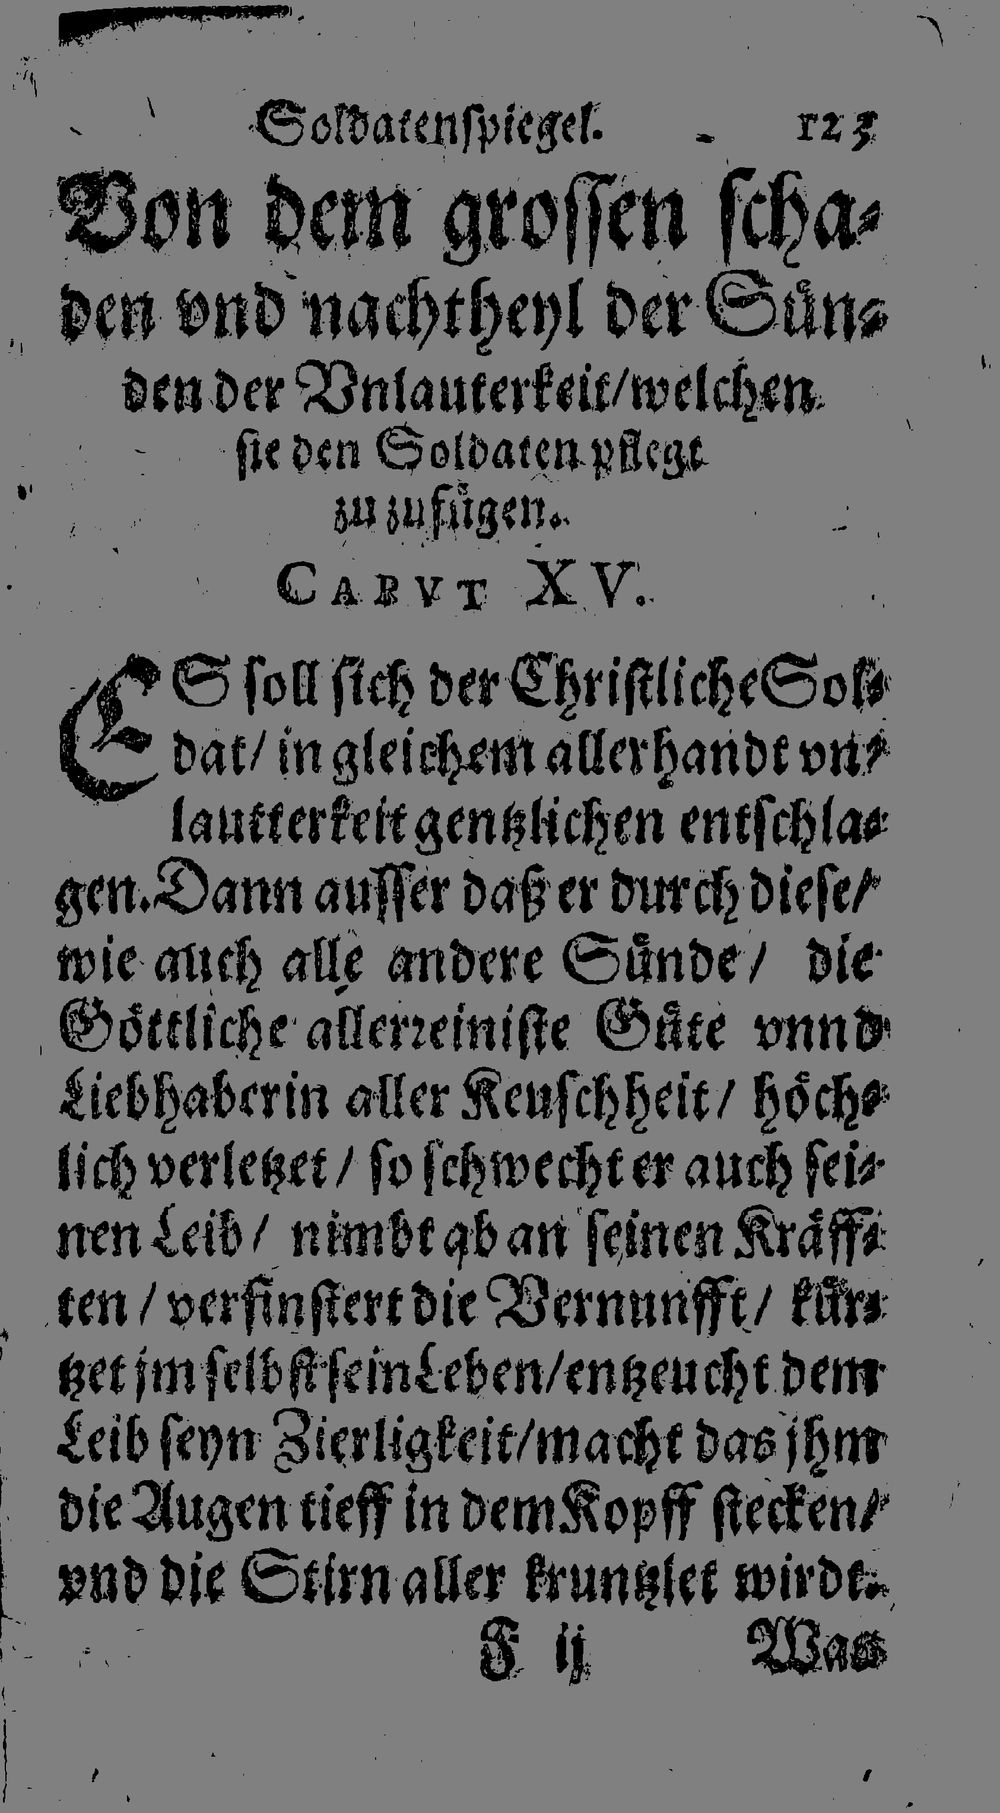 Soldatenspiegel. 123
Von dem grossen scha-
den vnd nachtheyl der Sůn-
den der Vnlauterkeit/welchen
sie den Soldaten pflegt
zu zufůgen.
CAPVT XV.
ES soll sich der Christliche Sol-
dat/ in gleichem allerhandt vn-
lautterkeit gentzlichen entschla-
gen. Dann ausser daß er durch diese/
wie auch alle andere Sůnde/ die
Gőttliche allerreiniste Gůte vnnd
Liebhaberin aller Keuschheit/ hőch-
lich verletzet/ so schwecht er auch sei-
nen Leib/ nimbt ab an seinen Kräff-
ten/ verfinstert die Vernunfft/ kůr-
tzet jm selbst sein Leben/entzeucht dem
Leib seyn Zierligkeit/macht das jhm
die Augen tieff in dem Kopff stecken/
vnd die Stirn aller kruntzlet wirdt.
F ij Was